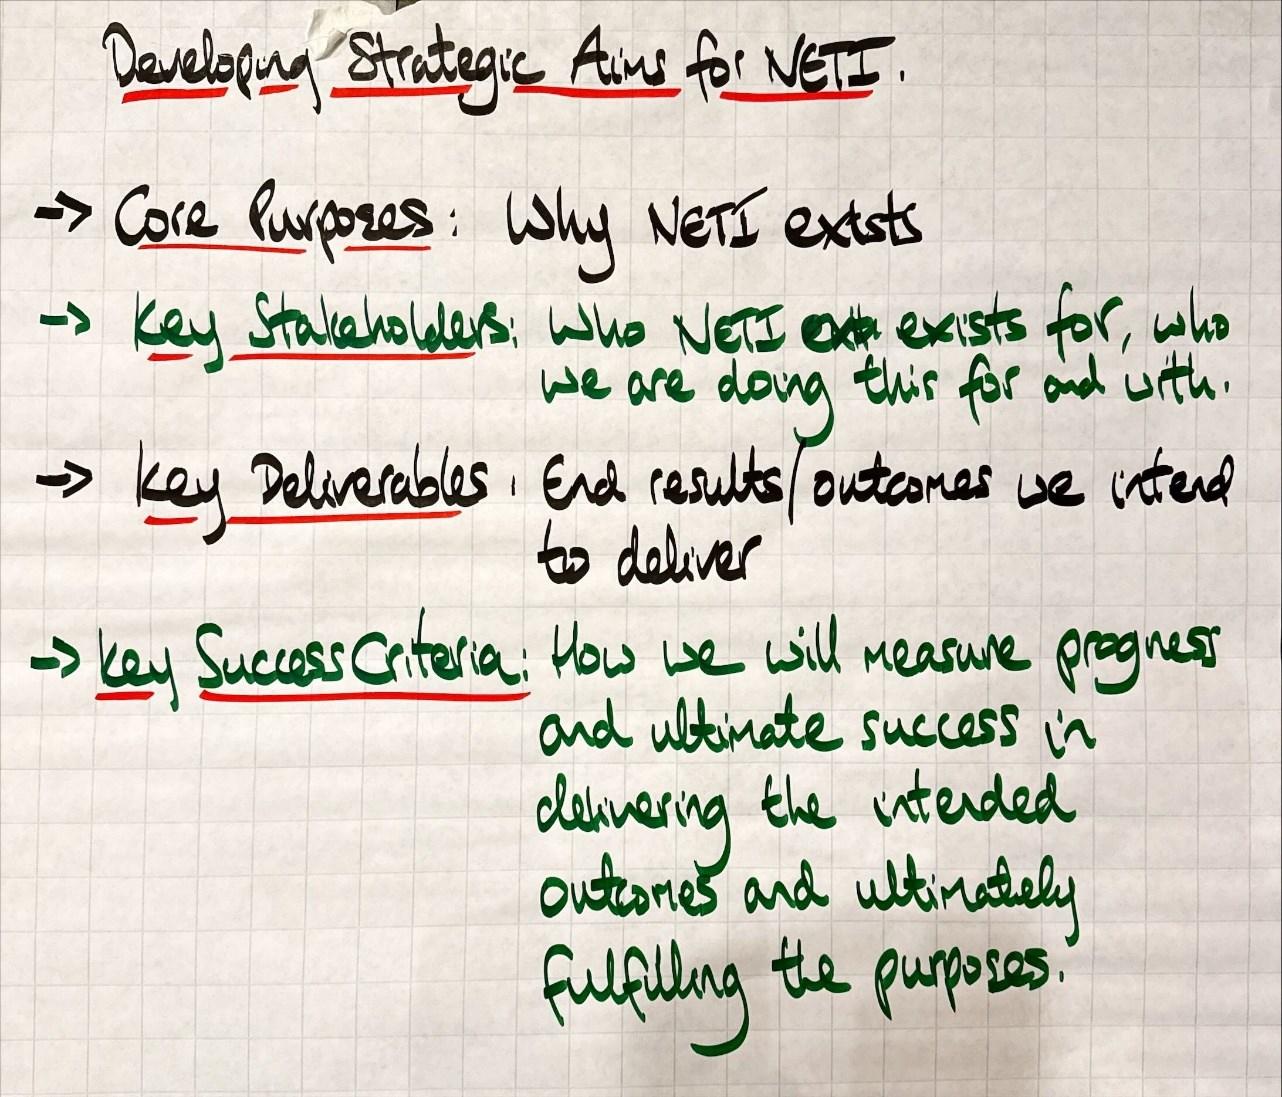 Developing Strategic Aims for NETI.
-> Core Purposes: Why NETI exists
-> Key Stakeholders: Who NETI exists for, who
we are doing this for and with.
-> Key Deliverables: End results/outcomes we intend
to deliver
-> Key Success Criteria: How we will measure progress
and ultimate success in
delivering the intended
outcomes and ultimately
fulfilling the purposes.